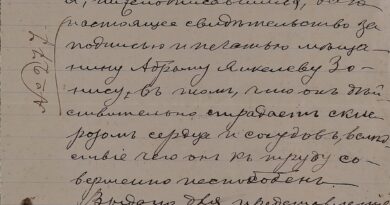 а, нижеподписавшийся, далъ
настоящее свидѣтельство за
подписью и печатью мѣща-
нину Абраму Янкелеву Зо-
нису, въ томъ, что онъ дѣй
ствительно страдаетъ скле
розомъ сердца и сосудовъ, вслѣд
ствіе чего онъ къ труду со-
вершенно неспособенъ.
Выдано для представленія
№ 277